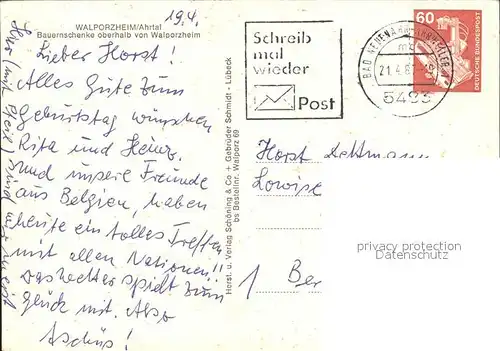 WALPORZHEIM/Ahrtal
Bauernschenke oberhalb von Walporzheim
19.4.
Lieber Horst!
Alles Gute zum
Geburtstag wünschen
Rita und Heinz.
und unsere Freunde
aus Belgien, haben
heute ein tolles Treffen
mit allen Nationen!!
Das Wetter spielt zum
Glück mit. Also
Tschüs!
Hier (mit Pfeil) sind wir
Herst. u. Verlag Schöning & Co. + Gebrüder Schmidt - Lübeck
bs Bestellnr. Walporz 69
Schreib
mal
wieder
Post
BAD NEUENAHR-AHRWEILER
21.4.8
5483
60
DEUTSCHE BUNDESPOST
Horst
1 Ber
privacy protection
Datenschutz